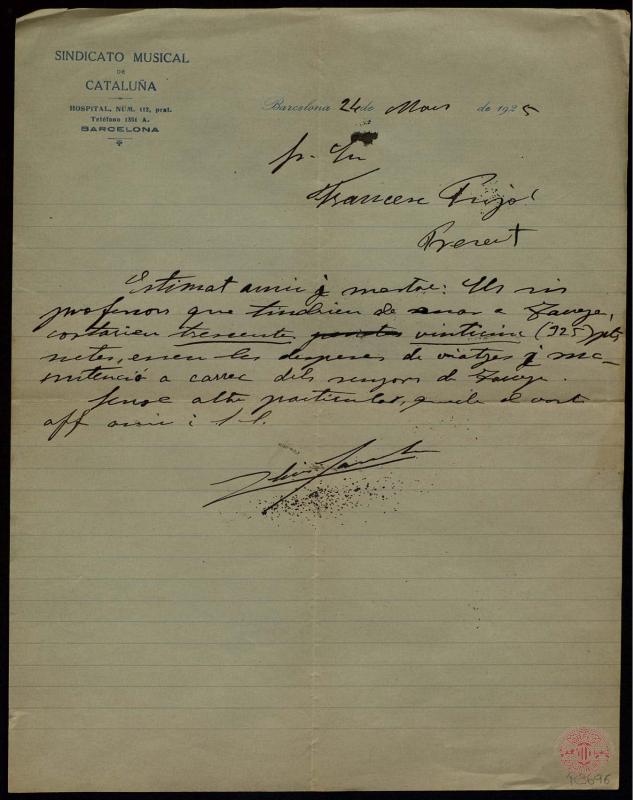 SINDICATO MUSICAL
DE
CATALUÑA
HOSPITAL, NÚM. 112, pral.
Teléfono 1351 A.
BARCELONA
Barcelona 24 de Mars de 1925
Sr. En
Francesc Pujol
Present
Estimat amic y mestre: Els sis
professors que tindrien de anar a
costarien trescents vinticinc (325) pts
netes, essen les despeses de viatges y ma-
nutenció a carrec dels senyors de
Sense altre particular, queda el vostre
aff amic i S.S.